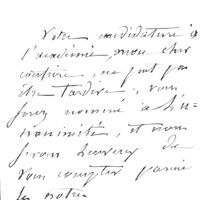 Votre candidature à
l'académie, mon cher
confrère, ne peut pas
être tardive, vous
serez nommé à l'u-
nanimité, et nous
serons heureux de
vous compter parmi
les nôtres